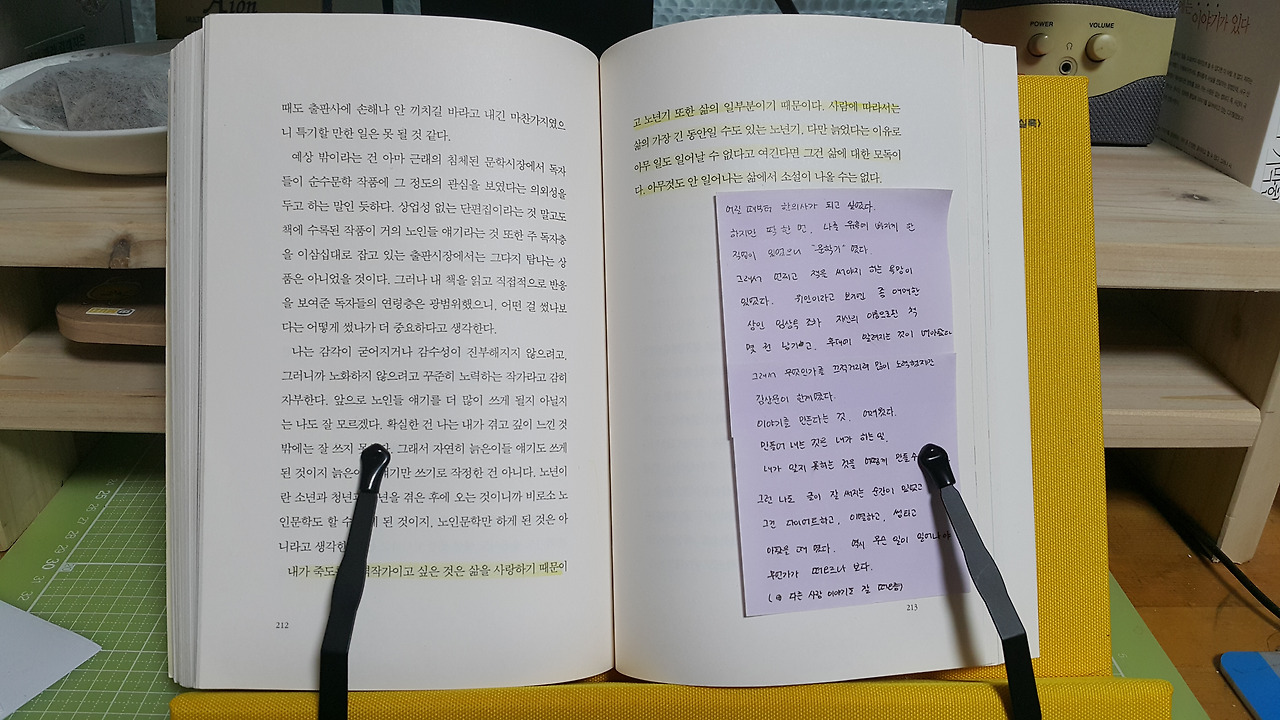 Aion
POWER
VOLUME
이야기가 있다
실록)
때도 출판사에 손해나 안 끼치길 바라고 내긴 마찬가지였으
니 특기할 만한 일은 못 될 것 같다.
예상 밖이라는 건 아마 근래의 침체된 문학시장에서 독자
들이 순수문학 작품에 그 정도의 관심을 보였다는 의외성을
두고 하는 말인 듯하다. 상업성 없는 단편집이라는 것 말고도
책에 수록된 작품이 거의 노인들 얘기라는 것 또한 주 독자층
을 이삼십대로 잡고 있는 출판시장에서는 그다지 탐나는 상
품은 아니었을 것이다. 그러나 내 책을 읽고 직접적으로 반응
을 보여준 독자들의 연령층은 광범위했으니, 어떤 걸 썼나보
다는 어떻게 썼나가 더 중요하다고 생각한다.
나는 감각이 굳어지거나 감수성이 진부해지지 않으려고,
그러니까 노화하지 않으려고 꾸준히 노력하는 작가라고 감히
자부한다. 앞으로 노인들 얘기를 더 많이 쓰게 될지 아닐지
는 나도 잘 모르겠다. 확실한 건 나는 내가 겪고 깊이 느낀 것
밖에는 잘 쓰지 그래서 자연히 늙은이들 얘기도 쓰게
된 것이지 얘기만 쓰기로 작정한 건 아니다. 노년이
란 소년과 청년 을 겪은 후에 오는 것이니까 비로소 노
인문학도 할 수 게 된 것이지, 노인문학만 하게 된 것은 아
니라고 생각한
내가 죽도 작가이고 싶은 것은 삶을 사랑하기 때문이
212
고 노년기 또한 삶의 일부분이기 때문이다. 사람에 따라서는
삶의 가장 긴 동안일 수도 있는 노년기, 다만 늙었다는 이유로
아무 일도 일어날 수 없다고 여긴다면 그건 삶에 대한 모독이
다. 아무것도 안 일어나는 삶에서 소설이 나올 수는 없다.
어릴 때부터 한의사가 되고 싶었다.
하지만 딱 한 번, 나를 유혹에 빠지게 한
직업이 있었으니 "문학가" 였다.
그래서 언젠가 책을 써야지 하는 욕망이
있었다.
상인 임상옥 조차 자신의 이름으로된 책
몇 권 남기고, 후대에 알려지는 것이 부러웠다
그래서 무엇인가를 끄적거리려 많이 노력했지만
이야기를 만든다는 것. 어려웠다.
만들어 내는 것은 내가 하는 일.
내가 알지 못하는 것을 어떻게 만들수
그런 나도 글이 잘 써지는 순간이 있었고
그건 다이어트하고, 이별하고, 썸타고
아팠을 때 였다. 역시 무슨 일이 일어나야
무언가가 떠오르나 보다.
다른 사람 이야기도 잘
213